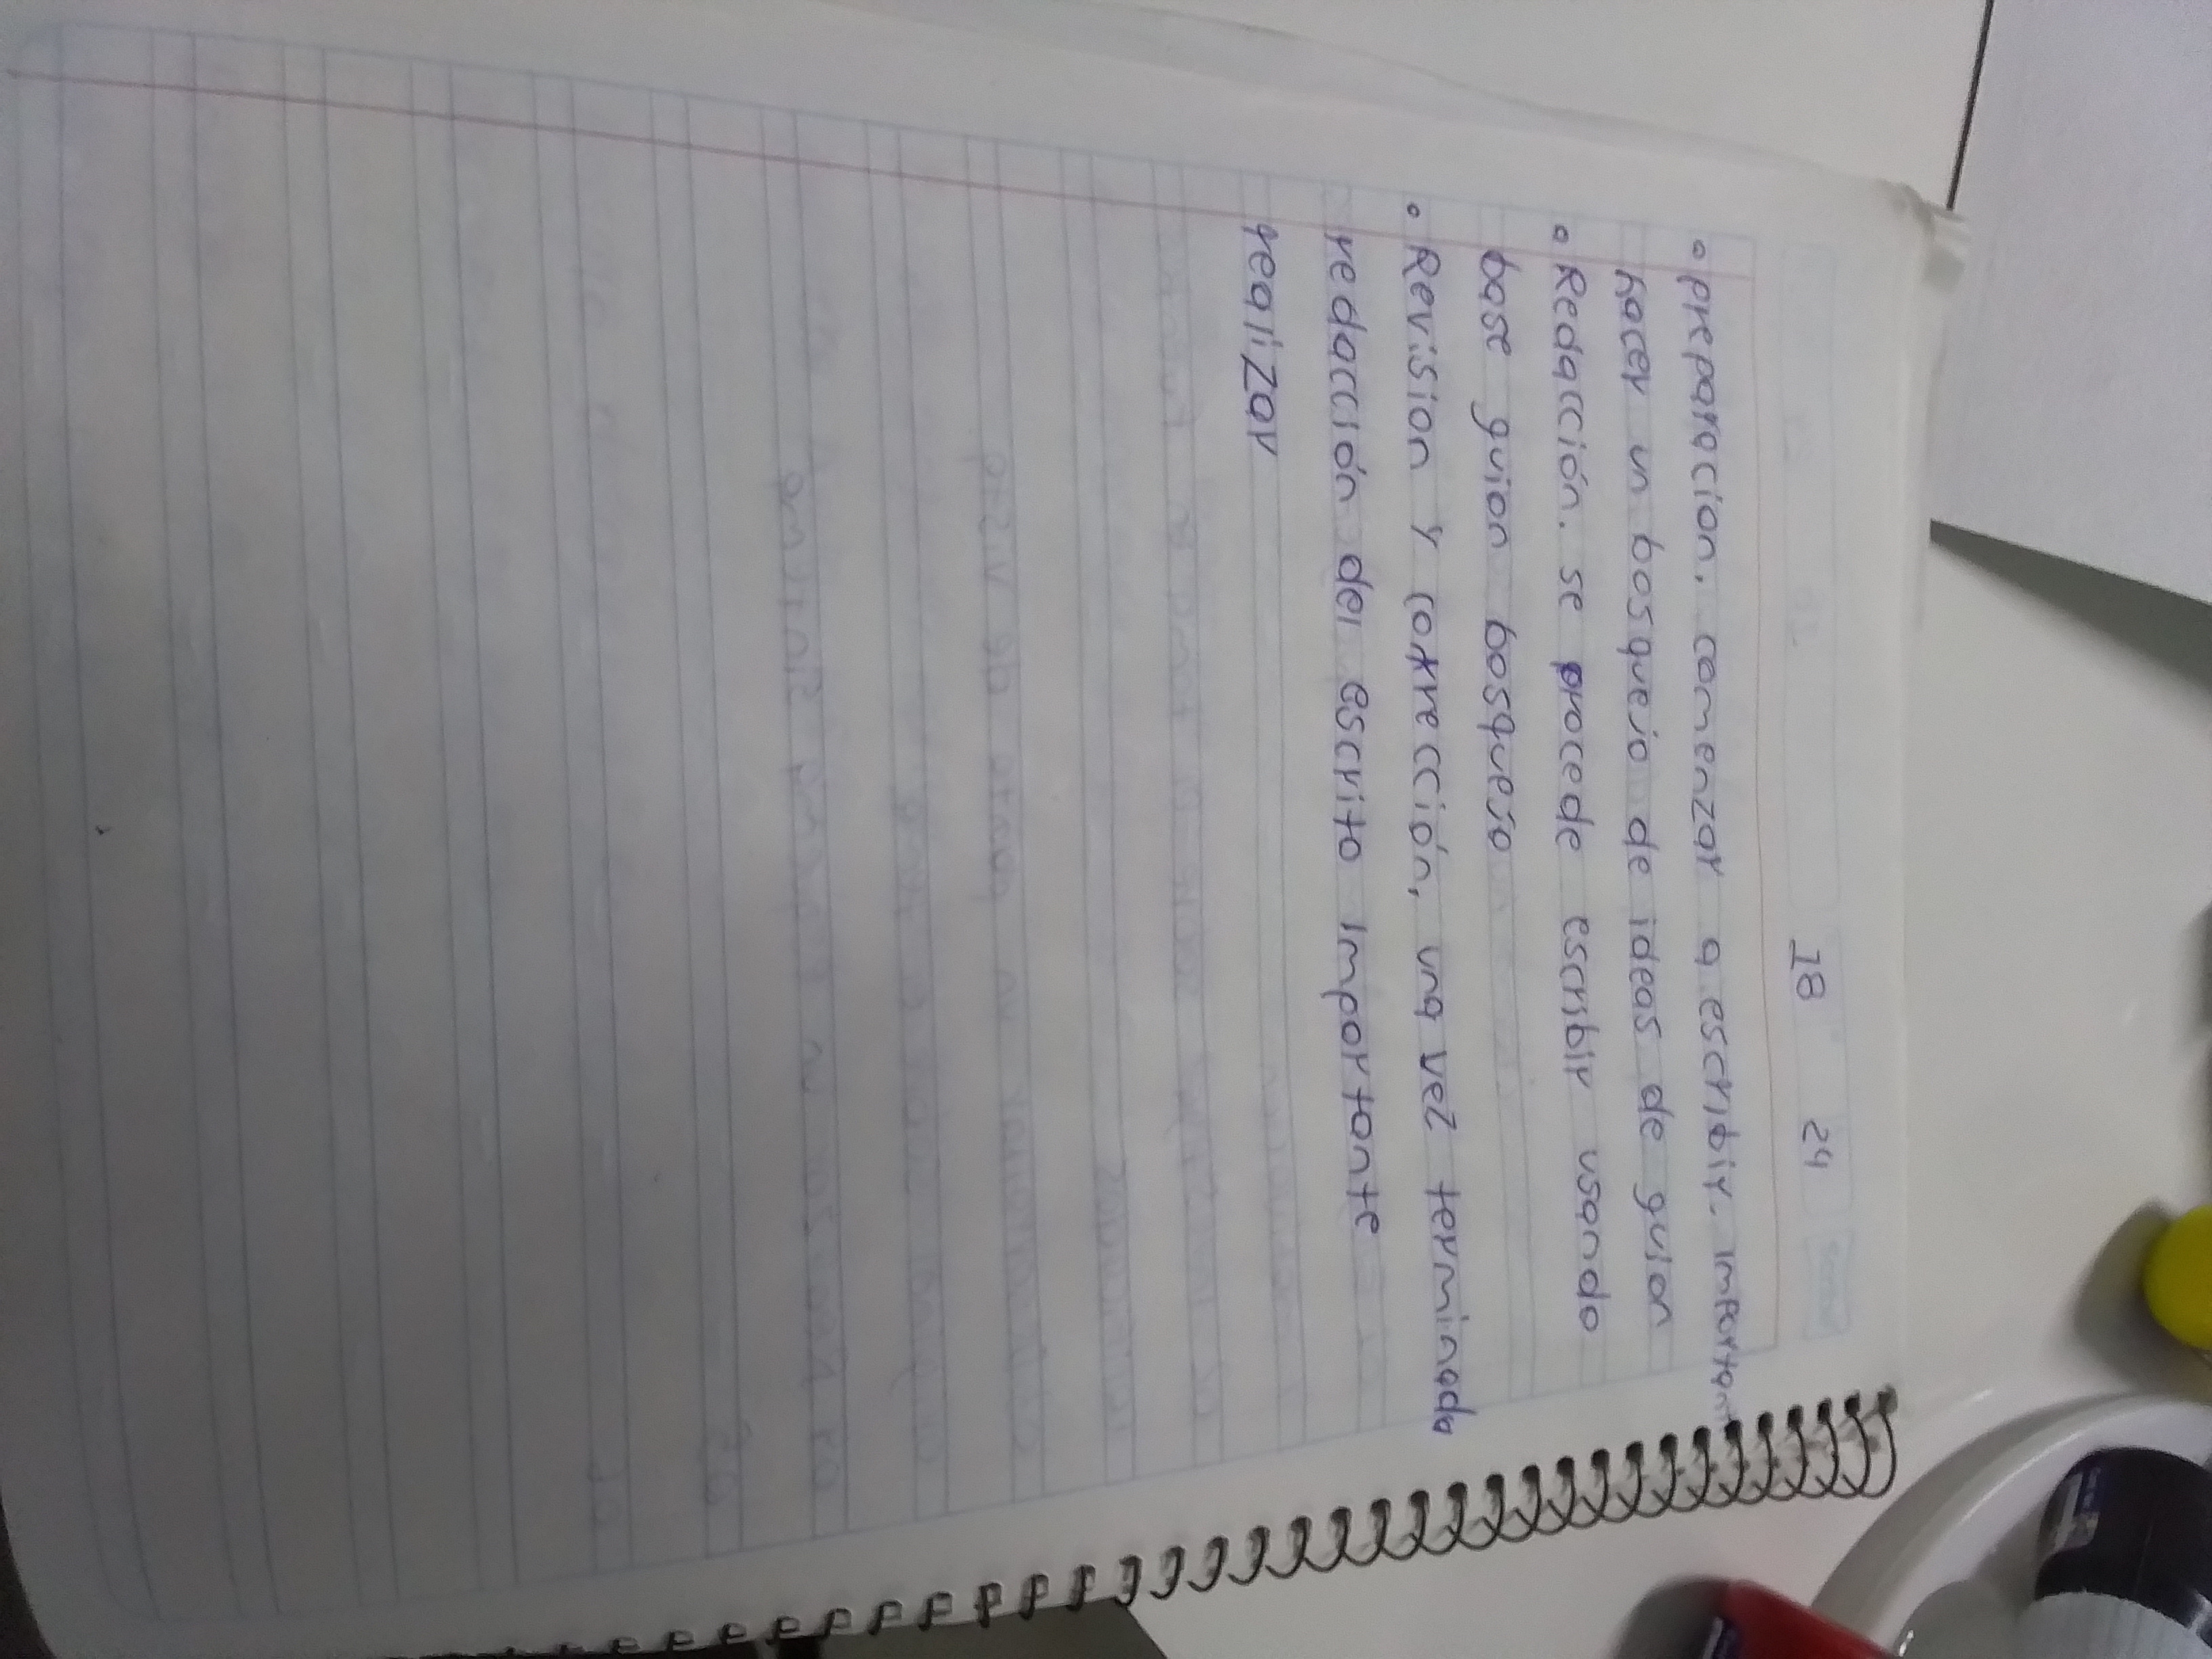 18 24
• preparación. comenzar a escribir. important
hacer un bosquejo de ideas de guion
• Redacción. se procede escribir usando
base guion bosquejo
• Revision y corrección, una vez terminada
redacción del escrito importante
realizar